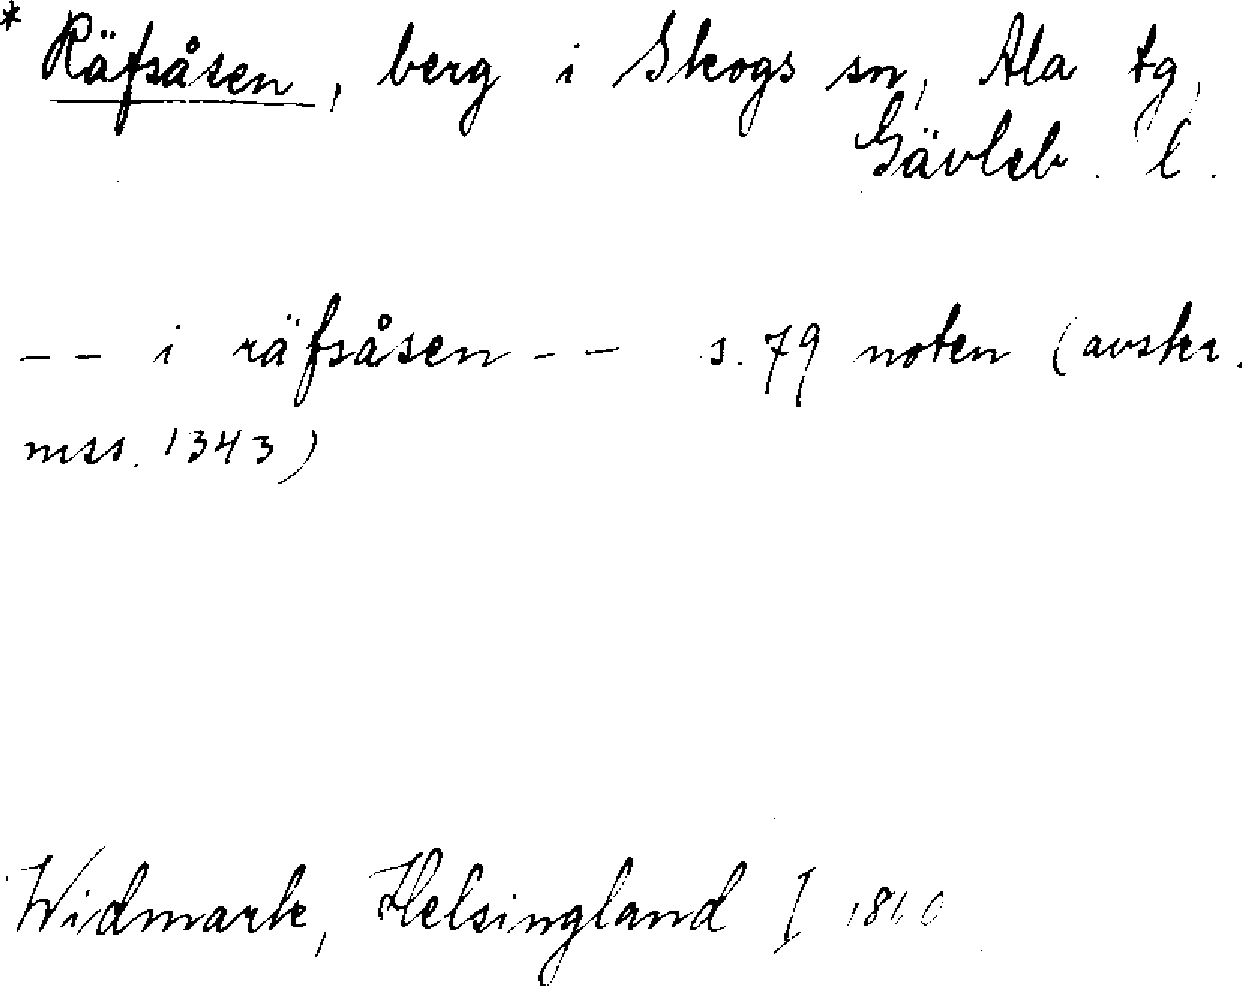 * Räfsåsen, berg i Skogs sn, Ala tg,
Gävleb. l.
-- i räfsåsen -- s. 79 noten (avskr.
mss. 1343)
Widmark, Helsingland I 1860